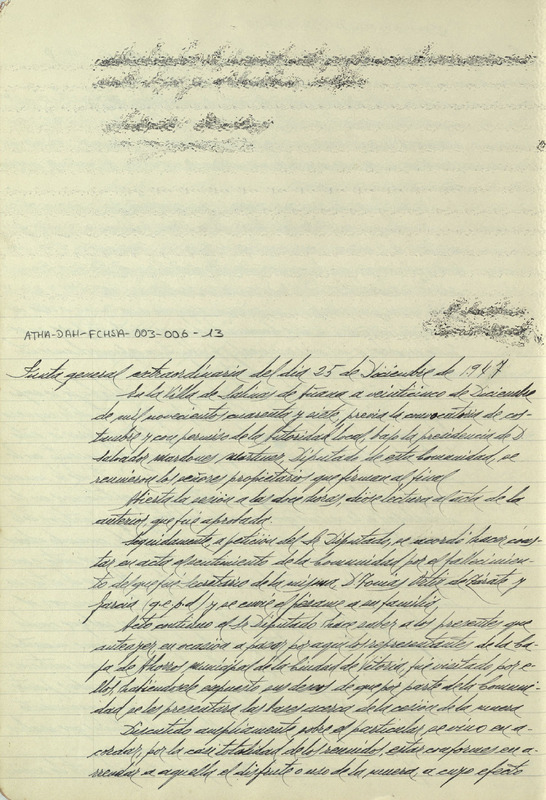 ATHA-DAH-FCHSA-003-006-13
Junta general extraordinaria del dia 25 de Diciembre de 1947
En la Villa de Salinas de Añana a veinticinco de Diciembre
de mil novecientos cuarenta y siete, previa la convocatoria de cos-
tumbre y con permiso de la Autoridad local, bajo la presidencia de D.
Salvador Mardones Martinez Diputado de esta Comunidad, se
reunieron los señores propietarios que firman al final.
Abierta la sesión a las doce horas, dióse lectura al acta de la
anterior, que fué aprobada.
Seguidamente, a petición del Sr Diputado, se acordó hacer cons-
tar en acta el sentimiento de la Comunidad por el fallecimien-
to del que fué Secretario de la misma, D. Tomás Ortiz de Zárate y
Garcia (q.e.p.d) y se envie el pésame a su familia.
Acto continuo el Sr Diputado hace saber a los presentes que
anteayer, en ocasión de pasar por aquí los representantes de la Ca-
ja de Ahorros municipal de la Ciudad de Vitoria, fué visitado por e-
llos, habiéndole expuesto sus deseos de que por parte de la Comuni-
dad se les presentara las bases acerca de la cesión de la muera
Discutido ampliamente sobre el particular, se vino en a-
cordar, por la casi totalidad de los reunidos, estar conformes en a-
rrendar a aquella el disfrute o uso de la muera, a cuyo efecto